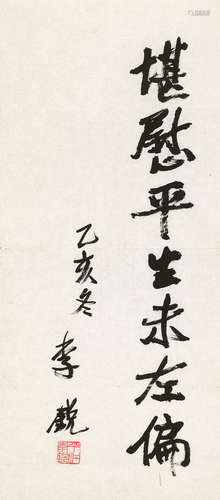 堪慰平生未左偏
乙亥冬
李锐